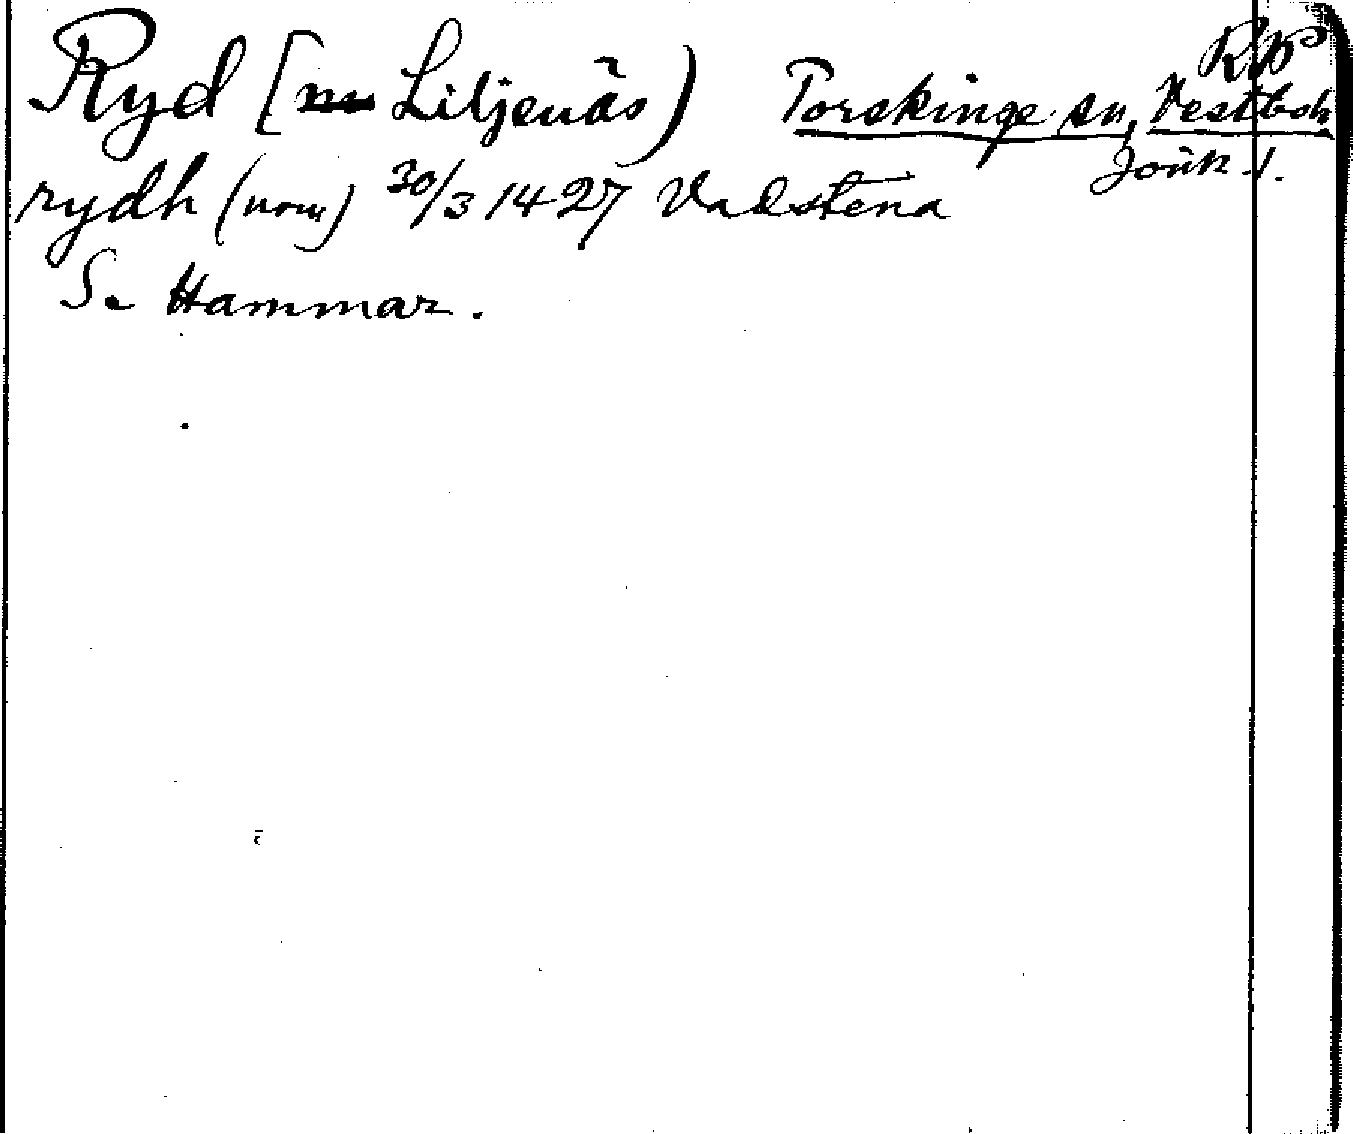 RP
Ryd [nu Liljenäs) Torskinge sn, Vestbo h
Jönk. l.
rydh (nom) 30/3 1427 Vadstena
Se Hammar.